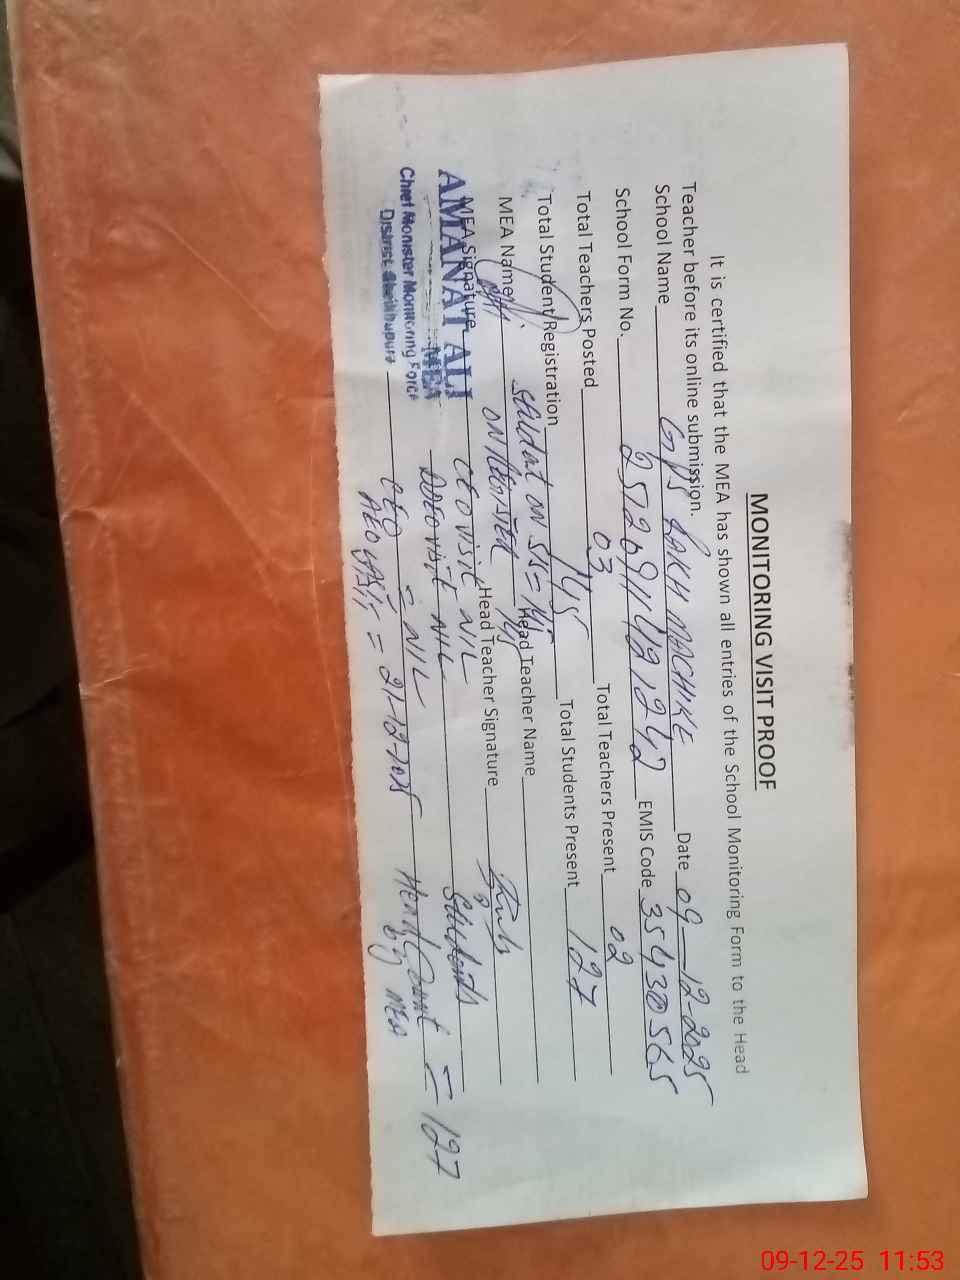 MONITORING VISIT PROOF
It is certified that the MEA has shown all entries of the School Monitoring Form to the Head
Teacher before its online submission.
School Name GPS Date 09-12-2025
School Form No. EMIS Code 35430565
Total Teachers Posted 03 Total Teachers Present 02
Total Student Registration 145 Total Students Present 127
MEA Name Student on SIS = Head Teacher Name
MEA Signature Head Teacher Signature
AMANAT ALI
MEA
Chief Monister Monitoring Force
District Sheikhupura
CEO visit NIL
DDEO visit NIL
= NIL
AEO visit = 21-
Students
Head Count = 127
by MEA
09-12-25 11:53